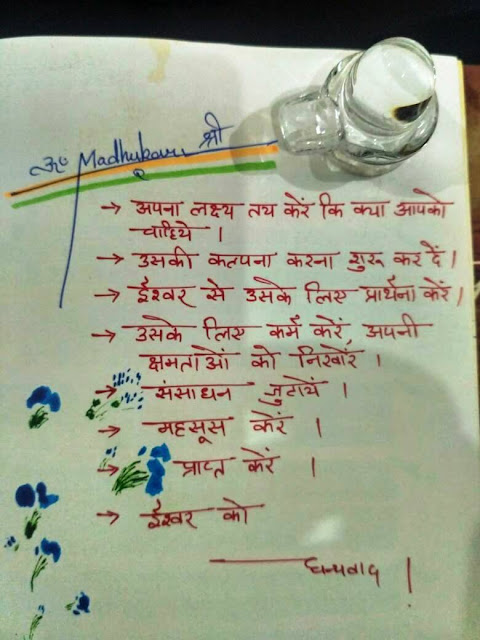 Madhukar श्री
→ अपना लक्ष्य तय करें कि क्या आपको
चाहिये ।
→ उसकी कल्पना करना शुरू कर दें ।
→ ईश्वर से उसके लिए प्रार्थना करें ।
→ उसके लिए कर्म करें, अपनी
क्षमताओं को निखारें ।
→ संसाधन जुटायें ।
→ महसूस करें ।
→ प्राप्त करें ।
→ ईश्वर को
धन्यवाद ।